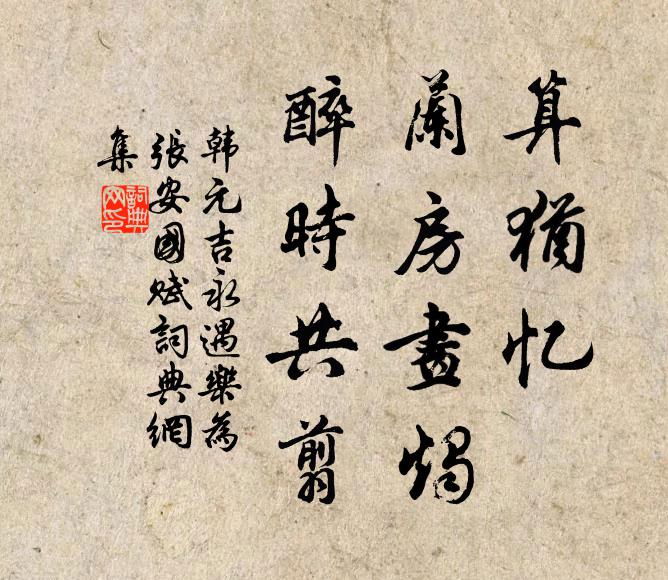 算犹忆
蘭房畫燭
醉時共翦
韩元吉永遇樂為
張安國賦詞典網
集
詞典网印